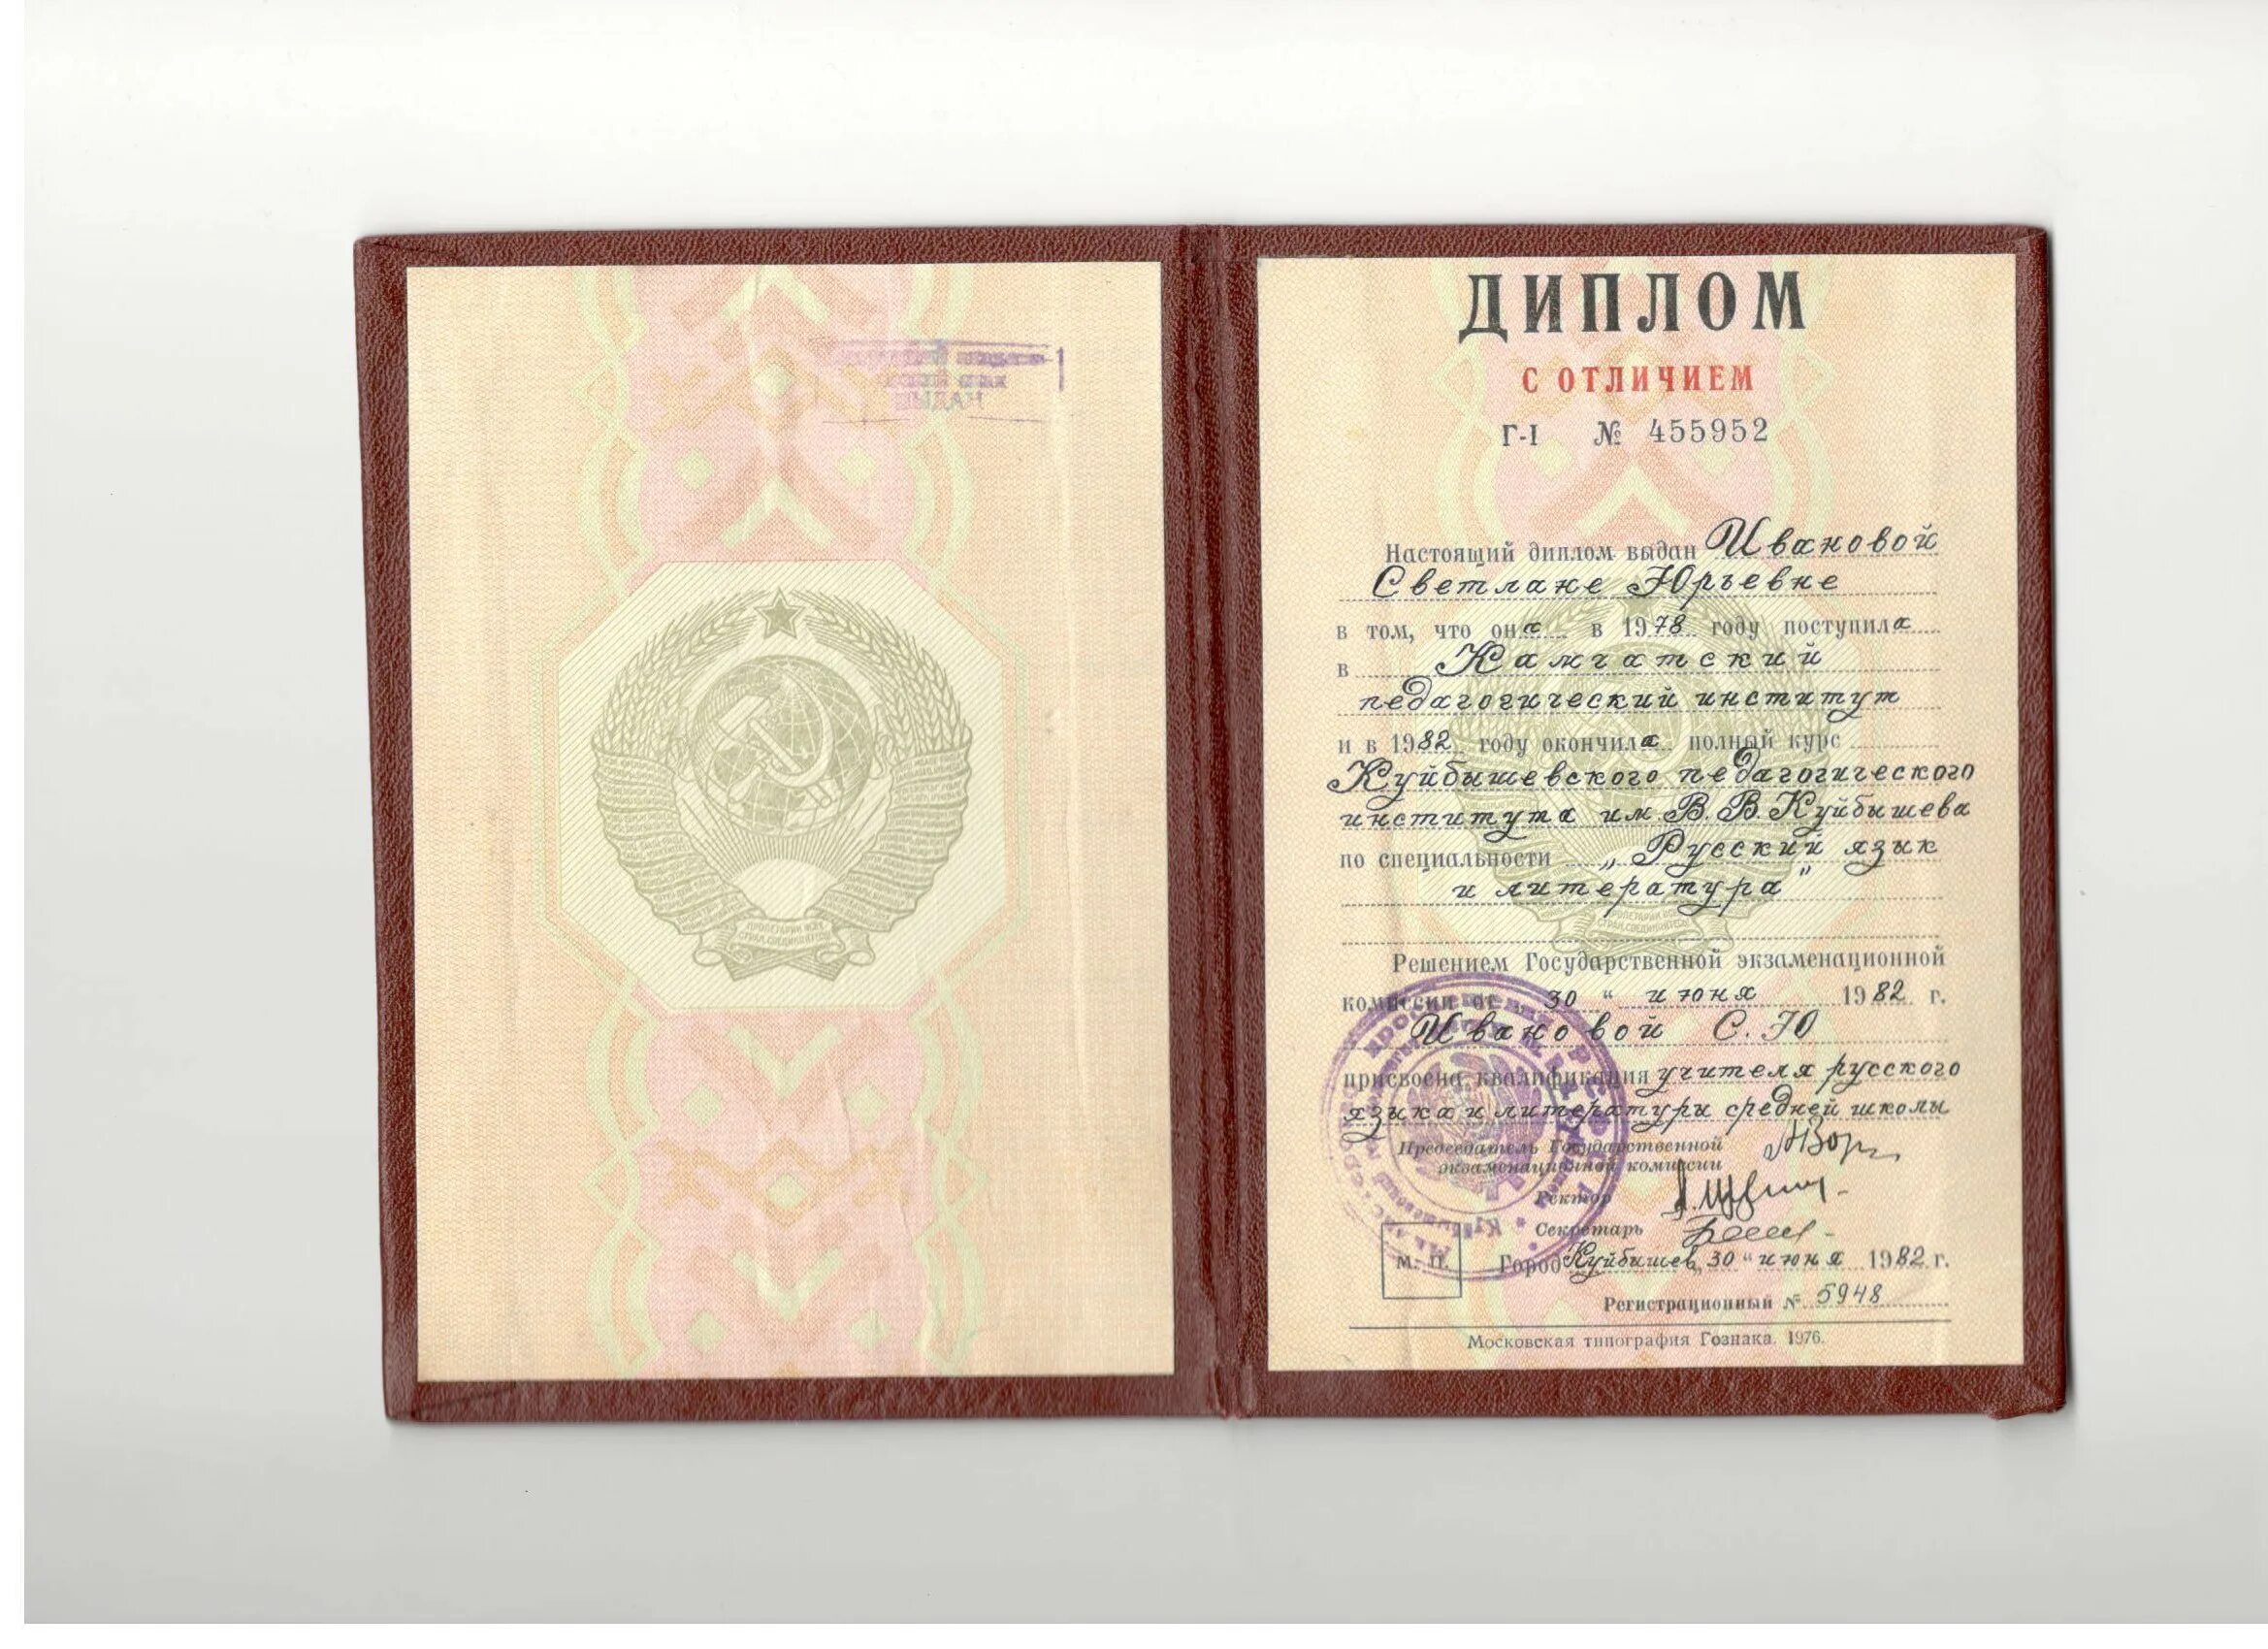 ВЫДАН
ПРОЛЕТАРИИ ВСЕХ
СТРАН, СОЕДИНЯЙТЕСЬ
ДИПЛОМ
С ОТЛИЧИЕМ
Г-I № 455952
Настоящий диплом выдан Ивановой
Светлане Юрьевне
в том, что она в 1978 году поступила
в Камчатский
педагогический институт
и в 1982 году окончила полный курс
Куйбышевского педагогического
института им. В. В. Куйбышева
по специальности „Русский язык
и литература"
Решением Государственной экзаменационной
комиссии от 30 " июня 1982 г.
Ивановой С. Ю
присвоена квалификация учителя русского
языка и литературы средней школы
Председатель Государственной
экзаменационной комиссии
Ректор
Секретарь
М. П. Город Куйбышев, 30 " июня 1982 г.
Регистрационный № 5948
Московская типография Гознака. 1976.